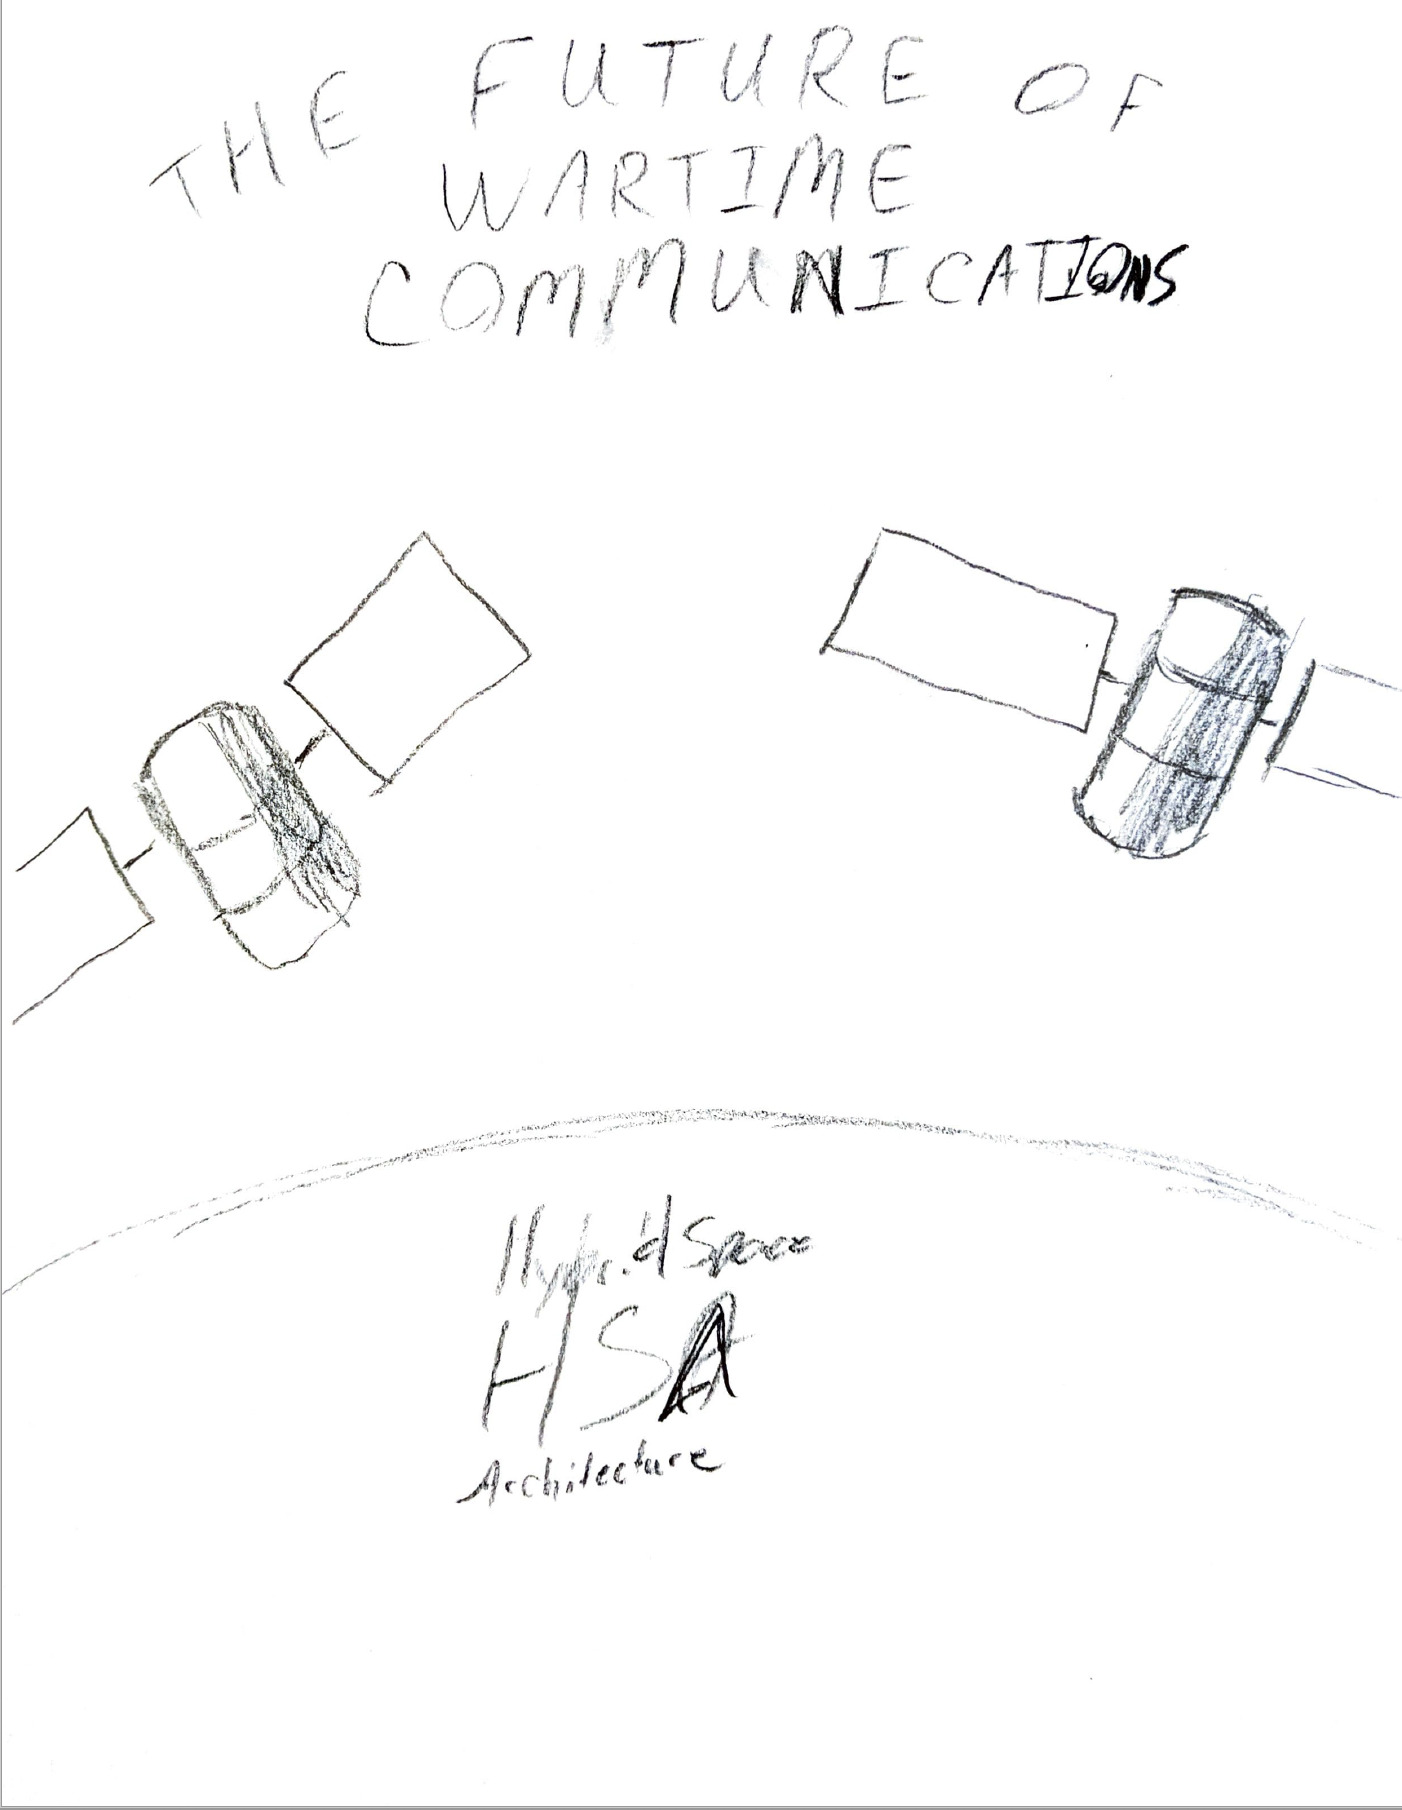 THE FUTURE OF
WARTIME
COMMUNICATIONS
Hybrid Space
HSA
Architecture